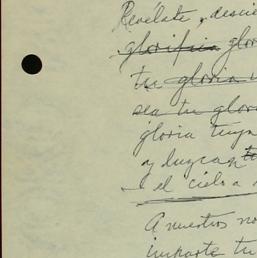 Revelate, descie
glorifica glor
tu gloria
sea tu glor
gloria tuya
y luzcan tu
el cielo a
A nuestros no
imparte tu